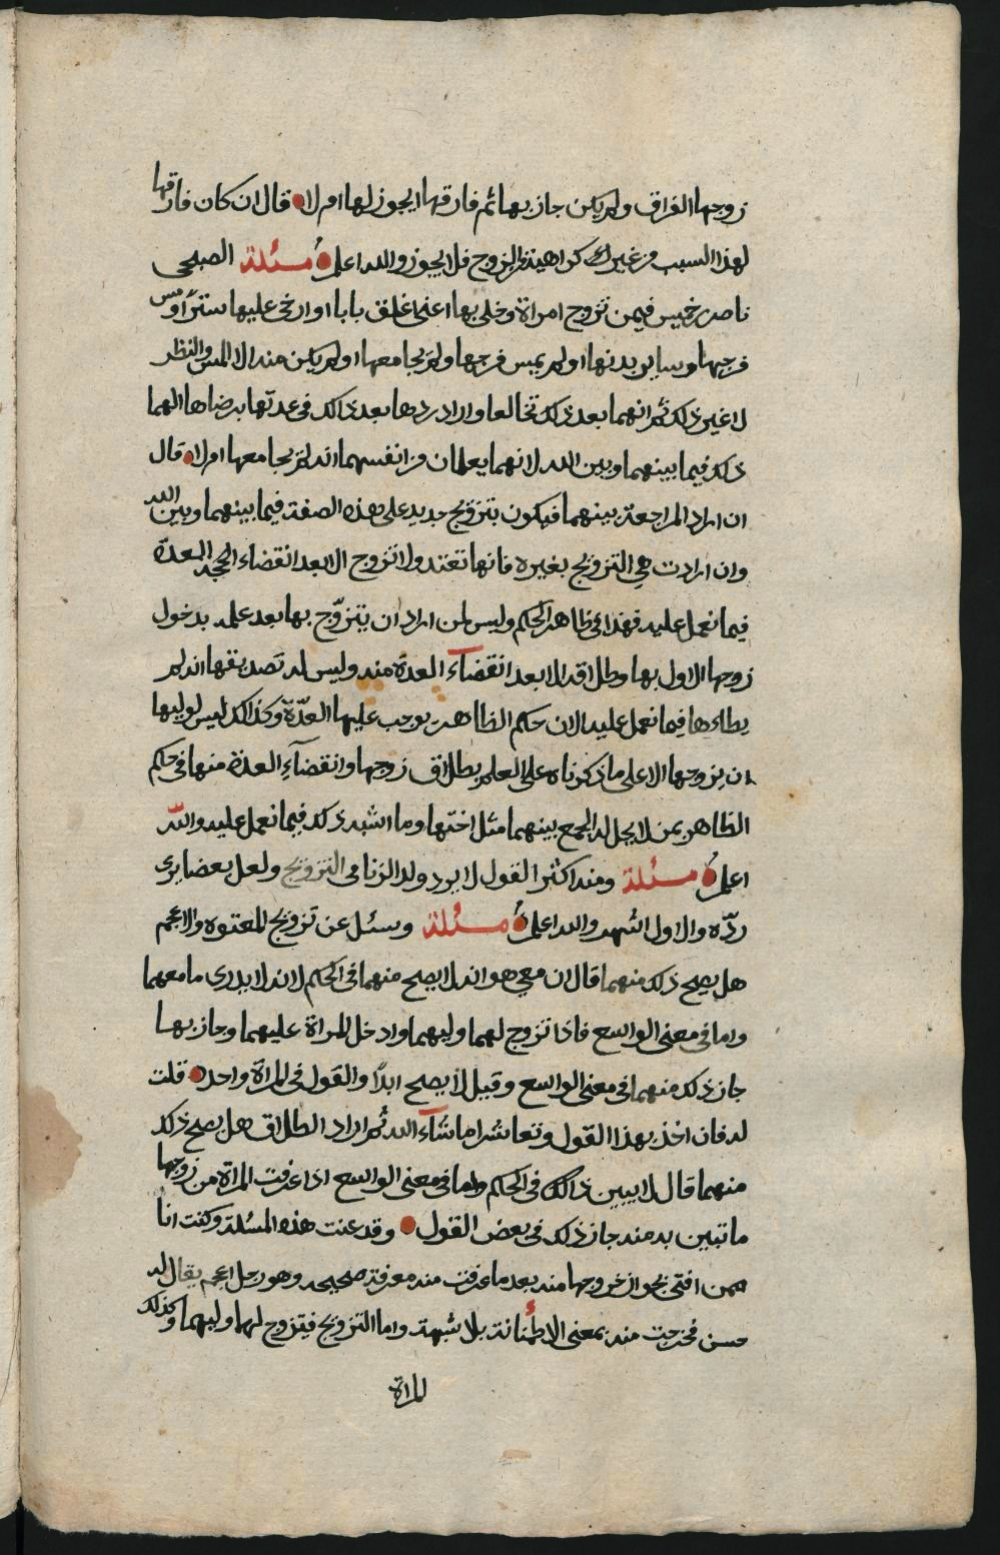 زوجها الفراق ولم يكن جاز بها ثم فارقها ايجوز لها ام لا قال ان كان فارقها
لهذا السبب من غير كراهية للزوج فلا يجوز والله اعلم مسئلة الصبحي
ناصر بن خميس فيمن تزوج امراة وخلى بها اعني اغلق بابا او ارخى عليها سترا ومس
فرجها وساير بدنها او لم يمس فرجها ولم يجامعها او لم يكن منه الا المس والنظر
لا غير ذلك ثم انهما بعد ذلك تخالعا واراد ردها بعد ذالك في عدتها برضاها الهما
ذلك فيما بينهما وبين الله لانهما يعلمان من انفسهما انه لم يجامعها ام لا قال
ان اراد المراجعة بينهما فيكون بتزويج جديد على هذه الصفة فيما بينهما وبين الله
وان ارادت هي التزويج بغيره فانها تعتد ولا تزوج الا بعد انقضاء العدة
فيما نعمل عليه فهذا في ظاهر الحكم وليس لمن اراد ان يتزوّج بها بعد علمه بدخول
زوجها الاول بها وطلاقه الا بعد انقضآء العدة منه وليس له تصديقها انه لم
يطاءها فيما نعمل عليه الان حكم الظاهر يوجب عليها العدّة وكذالك ليس لوليها
ان يزوجها الا على ما ذكرناه على العلم بطلاق زوجها وانقضآء العدة منها في حكم
الظاهر بمن لا يحل له الجمع بينهما مثل اختها وما اشبه ذلك فيما نعمل عليه والله
اعلم مسئلة ومنه اكثر القول لا يرد ولد الزنا في التزويج ولعل بعضا يرى
ردّه والاول اشهر والله اعلم مسئلة وسئل عن تزويج المعتوه والاعجم
هل يصح ذلك منهما قال ان معي هو انه لا يصح منهما في الحكم لانه لا يدرى ما معهما
واما في معنى الواسع فاذا تزوج لهما وليهما وادخل المراة عليهما وجاز بها
جاز ذلك منهما في معنى الواسع وقيل لا يصح ابدًا والقول في المراة واحد قلت
له فان اخذ بهذا القول وتعاشرا ما شآء الله ثم اراد الطلاق هل يصح ذلك
منهما قال لا يبين ذالك في الحكم واما في معنى الواسع اذا عرفت المراة من زوجها
ما تبين به منه جاز ذلك في بعض القول وقد عنت هذه المسئلة وكنت انا
ممن افتى بجواز خروجها منه بعد ما عرفت منه معرفة صحيحة وهو رجل اعجم يقال له
حسن فخرجت منه بمعنى الاطمئنانة بلا شبهة واما التزويج فيتزوج لهما وليهما وكذلك
المراة